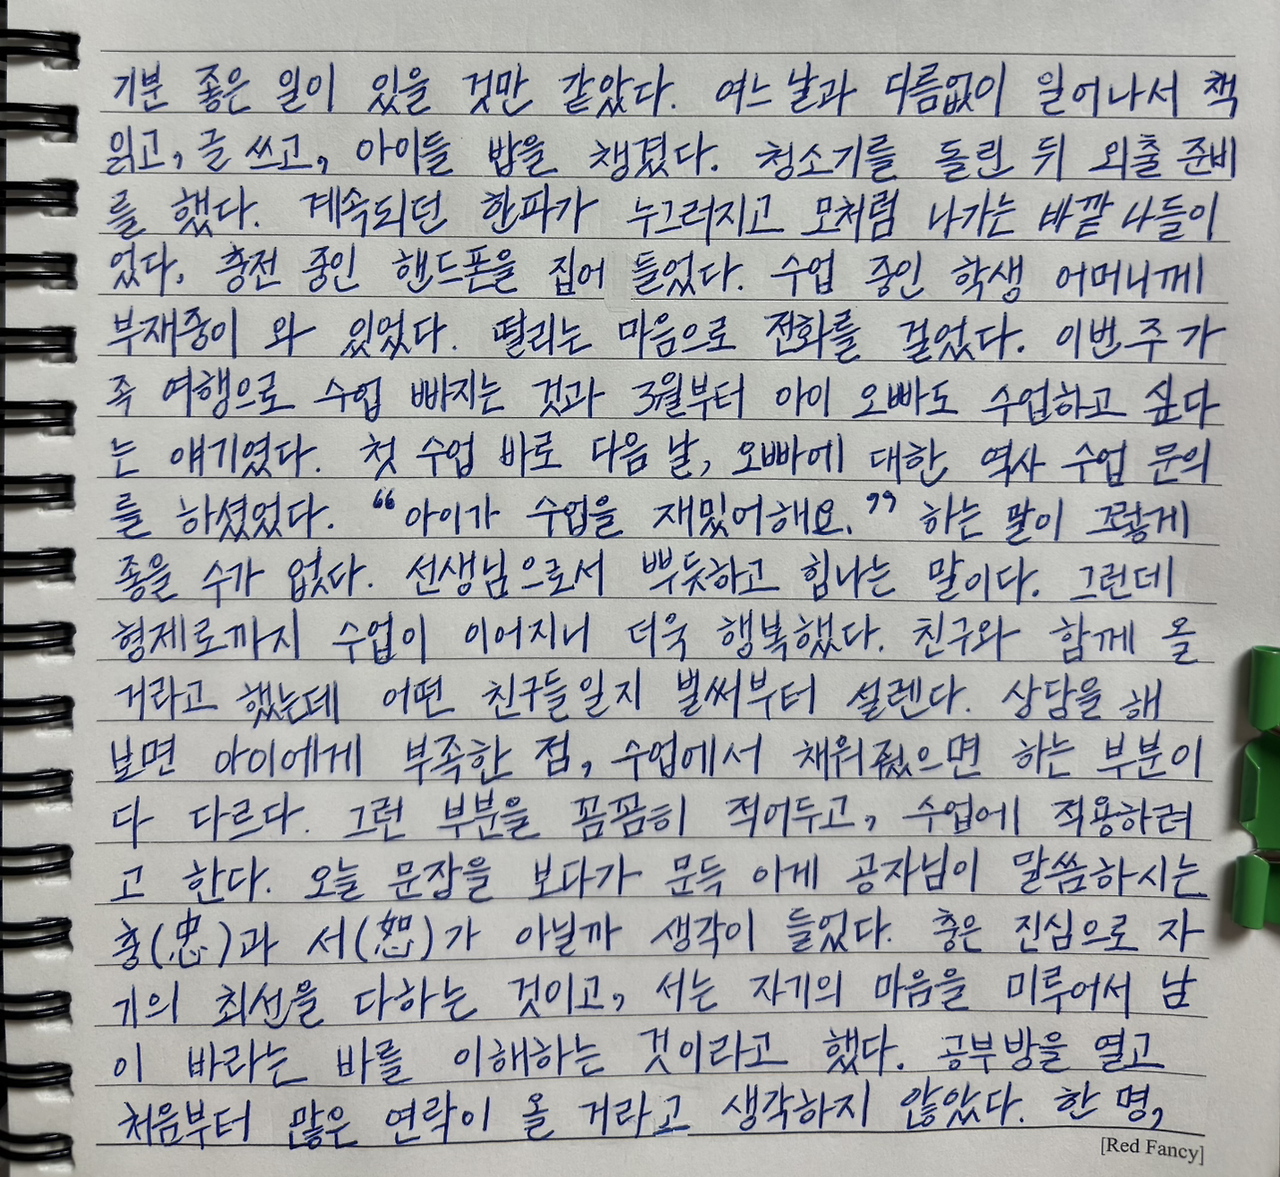 기분 좋은 일이 있을 것만 같았다. 여느 날과 다름없이 일어나서 책
읽고, 글 쓰고, 아이들 밥을 챙겼다. 청소기를 돌린 뒤 외출 준비
를 했다. 계속되던 한파가 누그러지고 모처럼 나가는 바깥 나들이
었다. 충전 중인 핸드폰을 집어 들었다. 수업 중인 학생 어머니께
부재중이 와 있었다. 떨리는 마음으로 전화를 걸었다. 이번주 가
족 여행으로 수업 빠지는 것과 3월부터 아이 오빠도 수업하고 싶다
는 얘기였다. 첫 수업 바로 다음 날, 오빠에 대한 역사 수업 문의
를 하셨었다. “아이가 수업을 재밌어해요.” 하는 말이 그렇게
좋을 수가 없었다. 선생님으로서 뿌듯하고 힘나는 말이다. 그런데
형제로까지 수업이 이어지니 더욱 행복했다. 친구와 함께 올
거라고 했는데 어떤 친구들일지 벌써부터 설렌다. 상담을 해
보면 아이에게 부족한 점, 수업에서 채워줬으면 하는 부분이
다 다르다. 그런 부분을 꼼꼼히 적어두고, 수업에 적용하려
고 한다. 오늘 문장을 보다가 문득 이게 공자님이 말씀하시는
충(忠)과 서(恕)가 아닐까 생각이 들었다. 충은 진심으로 자
기의 최선을 다하는 것이고, 서는 자기의 마음을 미루어서 남
이 바라는 바를 이해하는 것이라고 했다. 공부방을 열고
처음부터 많은 연락이 올 거라고 생각하지 않았다. 한 명,
[Red Fancy]